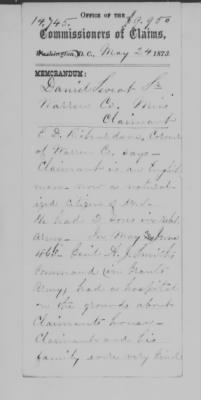 14,745. $9,950
OFFICE OF THE
Commissioners of Claims,
Washington, D.C., May 24 1873.
MEMORANDUM:
Daniel Sweat Sr
Warren Co. Miss
Claimant
E. D. Richardson,
of Warren Co. says—
Claimant is an English
man— now a naturali
zed citizen of U.S.
He had 2 sons in reb.
Army— In May & June
Genl. A. J. Smith's
Command (in Grants
Army) had a hospital
on the grounds about
Claimants house—
Claimant and his
family were very kind